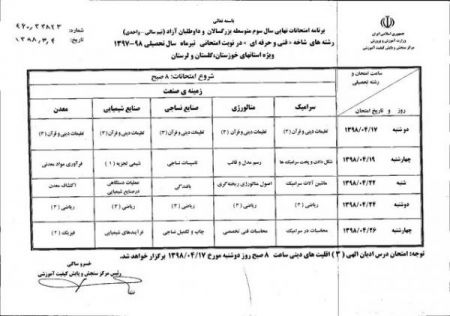 باسمه تعالی
برنامه امتحانات نهایی سال سوم متوسطه بزرگسالان و داوطلبان آزاد (نیم سالی - واحدی)
رشته های شاخه « فنی و حرفه ای » در نوبت امتحانی تیرماه سال تحصیلی ۹۸-۱۳۹۷
ویژه استانهای خوزستان، گلستان و لرستان
جمهوری اسلامی ایران
وزارت آموزش و پرورش
مرکز سنجش و پایش کیفیت آموزشی
شماره:
تاریخ: ۱۳۹۸/۳/۹
ساعت امتحان و رشته تحصیلی
روز و تاریخ امتحان
شروع امتحانات: ۸ صبح
زمینه ی صنعت
سرامیک متالورژی صنایع نساجی صنایع شیمیایی معدن
دوشنبه ۱۳۹۸/۰۴/۱۷ تعلیمات دینی و قرآن (۳) تعلیمات دینی و قرآن (۳) تعلیمات دینی و قرآن (۳) تعلیمات دینی و قرآن (۳) تعلیمات دینی و قرآن (۳)
چهارشنبه ۱۳۹۸/۰۴/۱۹ شکل دادن و پخت سرامیک ها رسم مدل و قالب تاسیسات نساجی شیمی تجزیه (۱) فرآوری مواد معدنی
شنبه ۱۳۹۸/۰۴/۲۲ ماشین آلات سرامیک اصول متالورژی ریخته گری بافندگی عملیات دستگاهی در صنایع شیمیایی اکتشاف معدن
دوشنبه ۱۳۹۸/۰۴/۲۴ ریاضی (۳) ریاضی (۳) ریاضی (۳) ریاضی (۳) ریاضی (۳)
چهارشنبه ۱۳۹۸/۰۴/۲۶ محاسبات در سرامیک محاسبات فنی تخصصی چاپ و تکمیل نساجی فرآیندهای شیمیایی فیزیک (۲)
توجه: امتحان درس ادیان الهی (۳) اقلیت های دینی ساعت ۸ صبح روز دوشنبه مورخ ۱۳۹۸/۰۴/۱۷ برگزار خواهد شد.
خسرو ساکی
رئیس مرکز سنجش و پایش کیفیت آموزشی